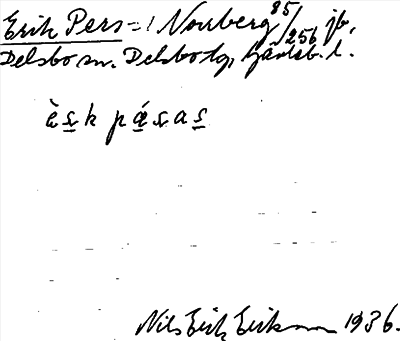 Erik Pers = / Norrberg 85/256 jb,
Delsbo sn. Delsbo tg, Gävleb. l.
è s̲ k p á̲ s̲ a s̲
Nils Erik Eriksson 1936.